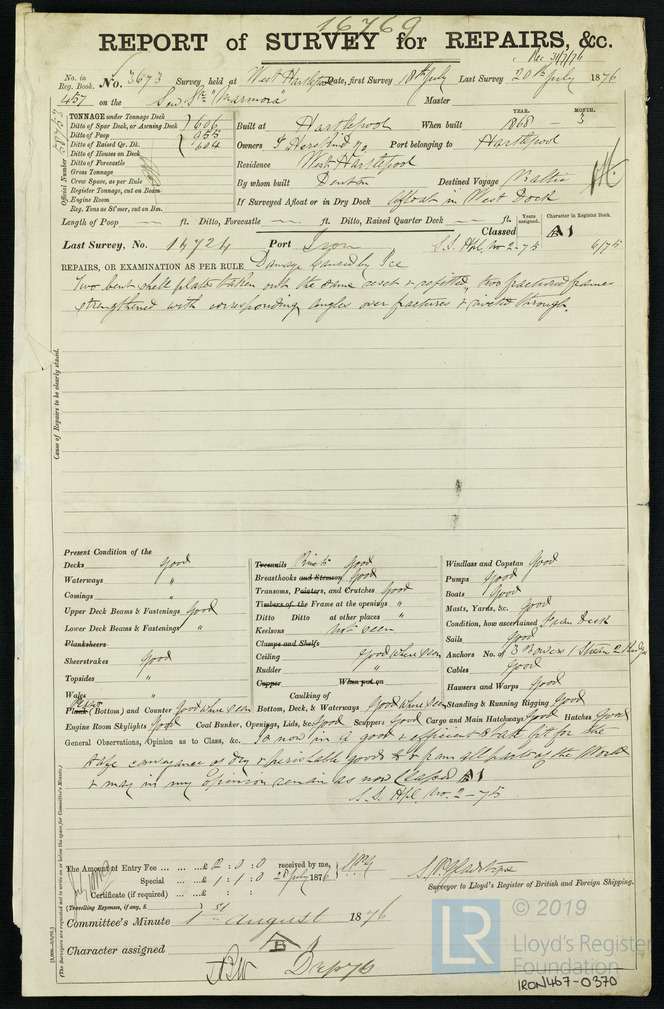 16769
REPORT of SURVEY for REPAIRS, &c.
Rec 31/7/76
No. in Reg. Book. No. 3673 Survey held at West Hartlepool Date, first Survey 18th July Last Survey 20th July 1876
457 on the Screw Str "Marmora" Master
TONNAGE under Tonnage Deck
Ditto of Spar Deck, or Awning Deck 606
Ditto of Poop 955
Ditto of Raised Qr. Dk. 1604
Ditto of Houses on Deck
Ditto of Forecastle
Gross Tonnage
Crew Space, as per Rule
Register Tonnage, cut on Beam
Engine Room
Reg. Tons as St'mer, cut on Bm.
Official Number
YEAR. MONTH.
Built at Hartlepool When built 1868 - 3
Owners Port belonging to Hartlepool
Residence West Hartlepool
By whom built Denton Destined Voyage Baltic
If Surveyed Afloat or in Dry Dock Afloat in West Dock
Length of Poop — ft. Ditto, Forecastle — ft. Ditto, Raised Quarter Deck — ft. Years assigned. Character in Register Book.
Classed A1
Last Survey, No. 14724 Port Iron S.S. Hpl. No 2-75 6/75
REPAIRS, OR EXAMINATION AS PER RULE, Damage caused by Ice
Two bent shell plates taken out the same reset & refitted, two fractured frames
strengthened with corresponding angles over fractures & riveted through.
Cause of Repairs to be clearly stated.
Present Condition of the
Decks Good
Waterways "
Comings "
Upper Deck Beams & Fastenings Good
Lower Deck Beams & Fastenings "
Planksheers
Sheerstrakes Good
Topsides "
Wales "
Plank (Bottom) and Counter Good where seen
Engine Room Skylights Good
Treenails Rivets Good
Breasthooks and Stemson Good
Transoms, Pointers, and Crutches Good
Timbers of the Frame at the openings "
Ditto Ditto at other places "
Keelsons not seen
Clamps and Shelfs
Ceiling Good where seen
Rudder "
Copper When put on
Caulking of
Bottom, Deck, & Waterways Good where seen
Coal Bunker, Openings, Lids, &c. Good Scuppers Good Cargo and Main Hatchways Good Hatches Good
Windlass and Capstan Good
Pumps Good
Boats Good
Masts, Yards, &c. Good
Condition, how ascertained From Deck
Sails Good
Anchors No. of 3 Bower 1 Stream 2 Kedges
Cables Good
Hawsers and Warps Good
Standing & Running Rigging Good
General Observations, Opinion as to Class, &c. Is now in a good & efficient state fit for the
safe conveyance of dry & perishable goods to & from all parts of the World
& may in my opinion remain as now Classed A1
S.S. Hpl. No. 2-75
The Amount of Entry Fee ... ... £ 2 : 0 : 0 received by me,
Special ... ... £ 1 : 1 : 0 28 July 1876
Certificate (if required) ... £
(Travelling Expenses, if any, £ )
Surveyor to Lloyd's Register of British and Foreign Shipping.
Committee's Minute 1st August 1876
Character assigned B
(The Surveyors are requested not to write on or below the space for Committee's Minute.)
© 2019
LR
Lloyd's Register
Foundation
IRON467-0370